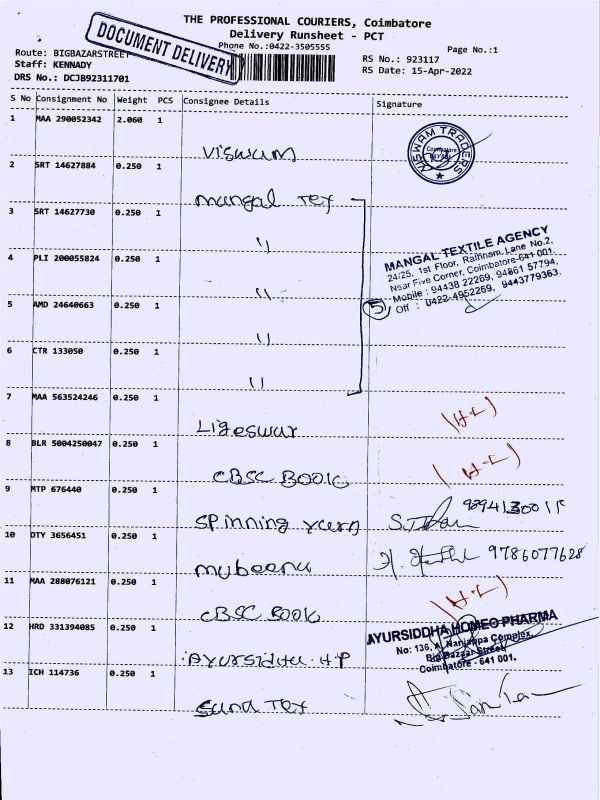 THE PROFESSIONAL COURIERS, Coimbatore
Delivery Runsheet - PCT
DOCUMENT DELIVERY
Phone No.:0422-3505555
Page No.:1
Route: BIGBAZARSTREET
RS No.: 923117
Staff: KENNADY
RS Date: 15-Apr-2022
DRS No.: DCJB92311701
S No Consignment No Weight PCS Consignee Details Signature
1 MAA 290052342 2.060 1
viswum
VISWAM TRADERS
Coimbatore
2 SRT 14627884 0.250 1
mangal Tex
3 SRT 14627730 0.250 1
"
4 PLI 200055824 0.250 1
"
MANGAL TEXTILE AGENCY
24/25, 1st Floor, Rathnam Lane No.2,
Near Five Corner, Coimbatore-641 001.
Mobile : 94438 22269, 94861 57794,
Off : 0422-4952269, 9443779363.
5
5 AMD 24640663 0.250 1
"
6 CTR 133050 0.250 1
"
7 MAA 563524246 0.250 1
Ligeswar
8 BLR 5004250047 0.250 1
CBSC BOOK
9 MTP 676440 0.250 1
spinning yarn
10 OTY 3656451 0.250 1
9786077628
mubeena
11 MAA 288076121 0.250 1
CBSC BOOK
12 HRD 331394085 0.250 1
AYURSIDDHA HOMEO PHARMA
No: 136, Nanjappa Complex,
Big Bazaar Street,
Coimbatore - 641 001.
Ayursidha HP
13 ICH 114736 0.250 1
Suna Tex